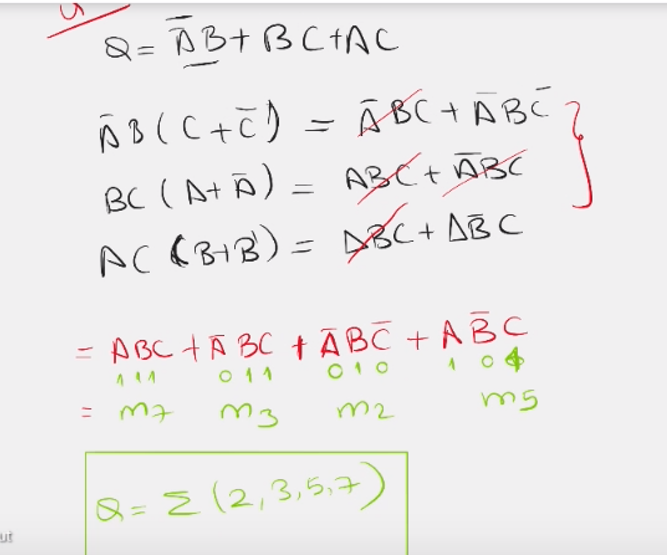 Q = A̅B + BC + AC
A̅B (C + C̅) = A̅BC + A̅BC̅
BC (A + A̅) = ABC + A̅BC
AC (B + B') = ABC + AB̅C
= ABC + A̅BC + A̅BC̅ + AB̅C
111 011 010 101
= m7 m3 m2 m5
Q = Σ (2,3,5,7)
ut